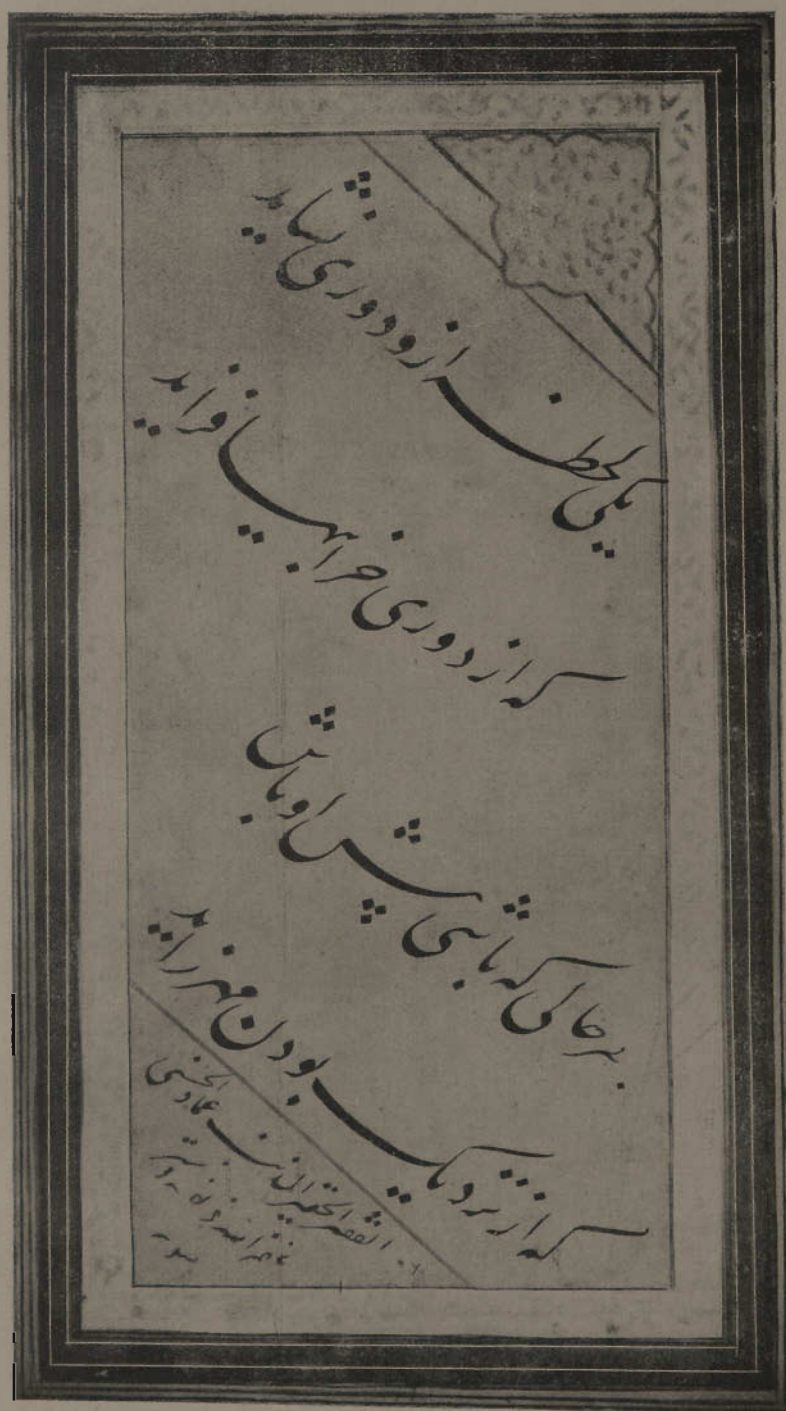 یکی لحظه ازو دوری نشاید
که از دوری خرابیها فزاید
بهر حالی که باشی پیش او باش
که از نزدیک بودن مهر زاید
الفقیر الحقیر المذنب عماد الحسنی
غفر الله ذنوبه